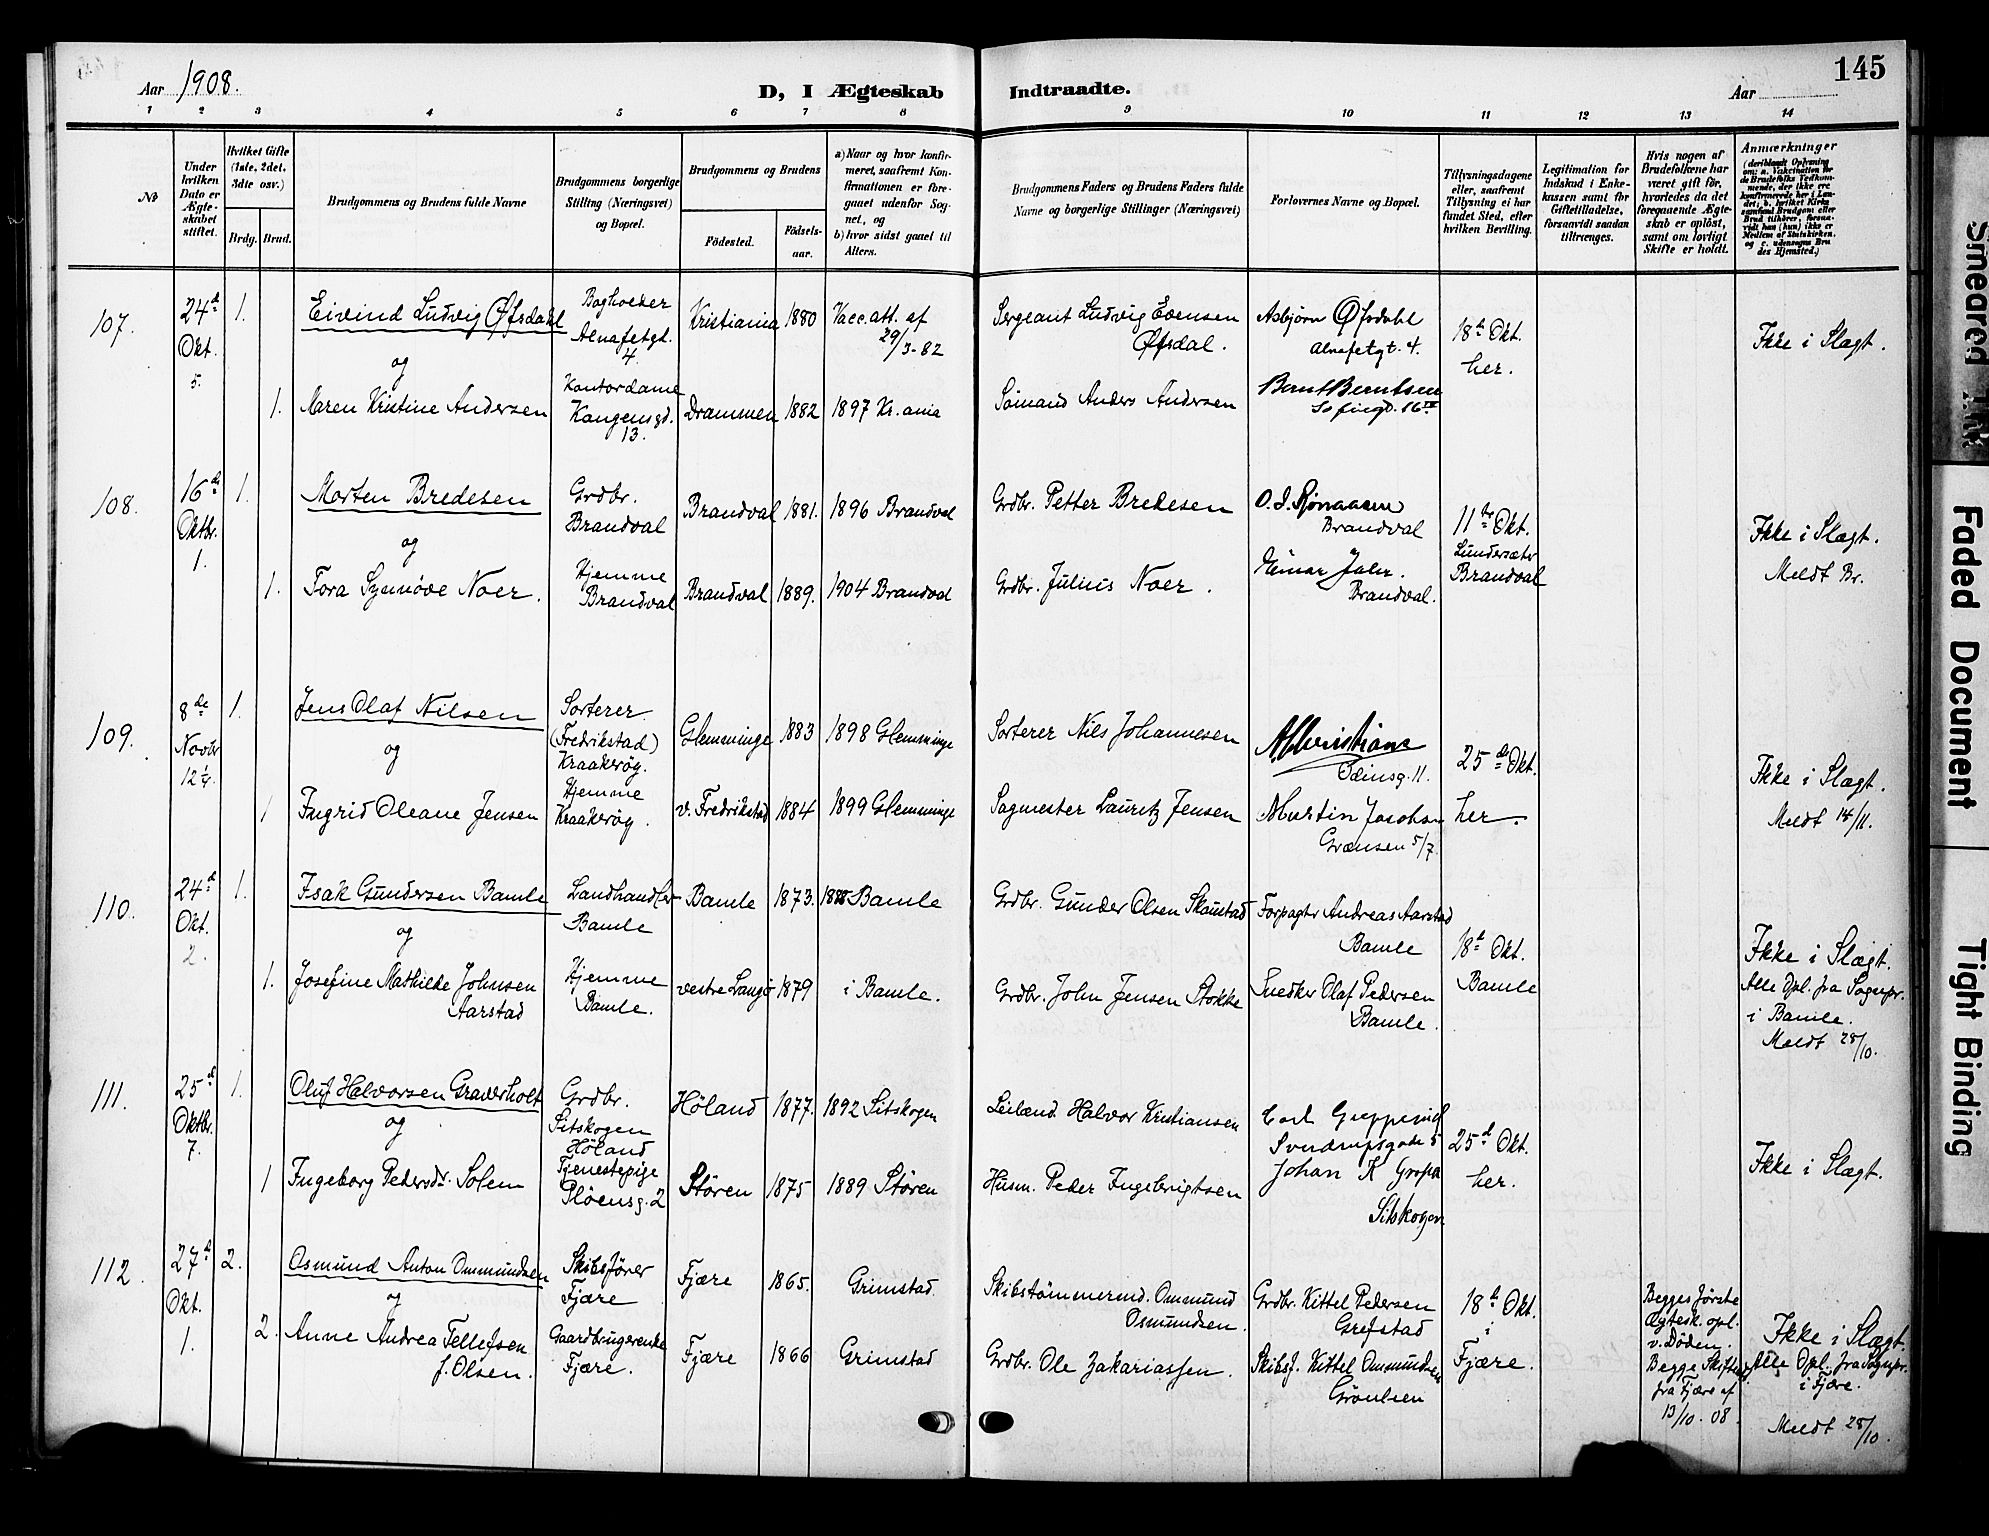 145
Aar 1908.
D, I Ægteskab Indtraadte.
Aar
1 2 3 4 5 6 7 8 9 10 11 12 13 14
No
Under hvilken Dato er Ægteskabet stiftet.
Hvilket Gifte (1ste, 2det, 3die osv.)
Brdg. Brud.
Brudgommens og Brudens fulde Navne
Brudgommens borgerlige Stilling (Næringsvei) og Bopæl.
Brudgommens og Brudens
Födested. Födsels-aar.
a) Naar og hvor konfirmeret, saafremt Konfirmationen er foregaaet udenfor Sognet, og
b) hvor sidst gaaet til Alters.
Brudgommens Faders og Brudens Faders fulde Navne og borgerlige Stillinger (Næringsvei)
Forlovernes Navne og Bopæl.
Tillysningsdagene eller, saafremt Tillysning ei har fundet Sted, efter hvilken Bevilling.
Legitimation for Indskud i Enkekassen samt for Giftetilladelse, forsaavidt saadan tiltrænges.
Hvis nogen af Brudefolkene har været gift för, hvorledes da det foregaaende Ægteskab er oplöst, samt om lovligt Skifte er holdt.
Anmærkninger
(deriblandt Oplysning om: a. Vakcination for de Brudefolks Vedkommende, der ikke ere konfirmerede her i Landet; b. hvilket Kirkesamfund Brudgom eller Brud tilhörer, forsaavidt han (hun) ikke er Medlem af Statskirken, og c. udensogns Brudes Hjemsted.)
107.
24d Okt. 5.
1.
Eivind Ludvig Øfsdahl
Alnafetgt. 4
Kristiania 1880
Vacc. att. af 29/3-82
Sergeant Ludvig Evensen Øfsdal.
Asbjørn Øfsdahl
Alnafetgt. 4.
18d Okt. her.
Ikke i Slægt.
og
1.
Maren Kristine Andersen
Kontordame
Kongensgd. 13.
Drammen 1882
1897 Kr.ania
Sömand Anders Andersen
Bernt Berntsen
Sofiengd. 16
108.
16de Oktbr. 1.
1.
Morten Bredesen
Grdbr. Brandval
Brandval 1881.
1896 Brandval
Grdbr. Petter Bredesen
Brandval
11te Okt. Lundersæter Brandval
Ikke i Slægt.
Meldt Br.
og
1.
Tora Synnöve Noer.
Hjemme Brandval
Brandval 1889.
1904 Brandval
Grdbr. Julius Noer.
Brandval.
109.
8de Novbr 12 1/4.
1.
Jens Olaf Nilsen
Sorterer (Fredrikstad) Kraakerøy.
Glemminge 1883
1898 Glemminge
Sorterer Nils Johannesen
Odinsg. 11.
25de Okt. her.
Ikke i Slægt.
Meldt 14/11.
og
1
Ingrid Oleane Jensen
Hjemme Kraakerøy.
v. Fredrikstad 1884
1899 Glemminge
Sagmester Lauritz Jensen
Martin
Grænsen 5/7.
110.
24d Okt. 2.
1.
Isak Gundersen Bamle
Landhandler Bamle
Bamle 1873.
Bamle
Grdbr. Gunder Olsen Skaustad
Forpagtr Andreas Aarstad Bamle
18d Okt. Bamle
Ikke i Slægt.
Alle Opl. fra Sognepr. i Bamle.
Meldt 28/10.
og
1.
Josefine Mathilde Johnsen Aarstad
Hjemme Bamle.
vestre Langö 1879
i Bamle.
Grdbr. John Jensen Stokke
Snedker Olaf Pedersen Bamle.
111.
25d Oktbr. 7.
1.
Oluf Halvorsen Graverholt
Grdbr. Sitskogen Höland
Höland 1877.
1892 Sitskogen
Leilænd. Halvor Kristiansen
Sverdrupsgade 5
25d Okt. her.
Ikke i Slægt.
og
1
Ingeborg Pedersdr. Solem
Tjenestepige Plöensg. 2
Stören 1875
1889 Stören
Husm. Peder Ingebrigtsen
Johan K
Sitskogen
112.
27d Okt. 1.
2.
Osmund Anton Ommundsen
Skibsförer Fjære
Fjære 1865.
Grimstad
Skibstömmermd. Ommund Osmundsen.
Grdbr. Kittel Pedersen Grefstad
18d Okt. i Fjære.
Begges förste Ægtesk. opl. v. Döden.
Begge Skifteatt. fra Fjære af 13/10.08.
Ikke i Slægt.
Alle Opl. fra Sognepr. i Fjære.
Meldt 28/10.
og
2.
Anne Andrea Tellefsen f. Olsen.
Gaardbrugerenke Fjære.
Fjære 1866
Grimstad
Grdbr. Ole Zakariassen.
Skibsf. Kittel Ommundsen
Smeared Ink
Faded Document
Tight Binding